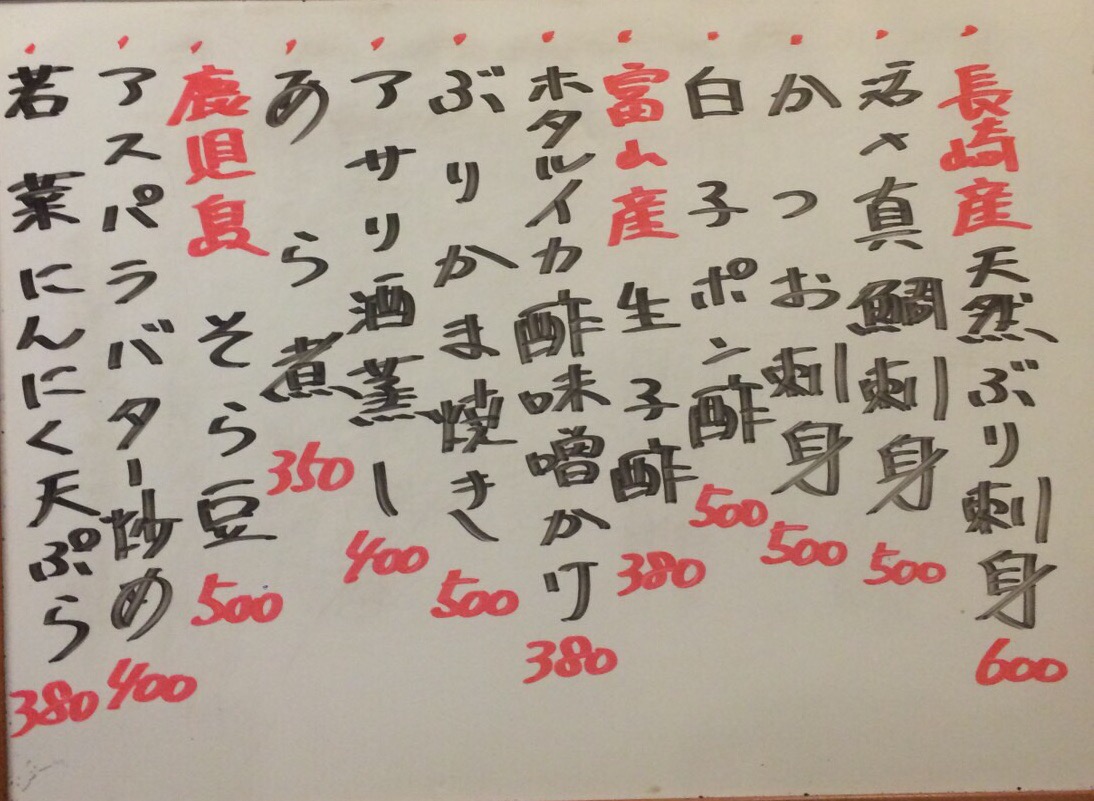 ・長崎産天然ぶり刺身 600
・活〆真鯛刺身 500
・かつお刺身 500
・白子ポン酢 500
・富山産 生子酢 380
・ホタルイカ酢味噌かけ 380
・ぶりかま焼き 500
・アサリ酒蒸し 400
・あら煮 350
・鹿児島 そら豆 500
・アスパラバター炒め 400
・若葉にんにく天ぷら 380